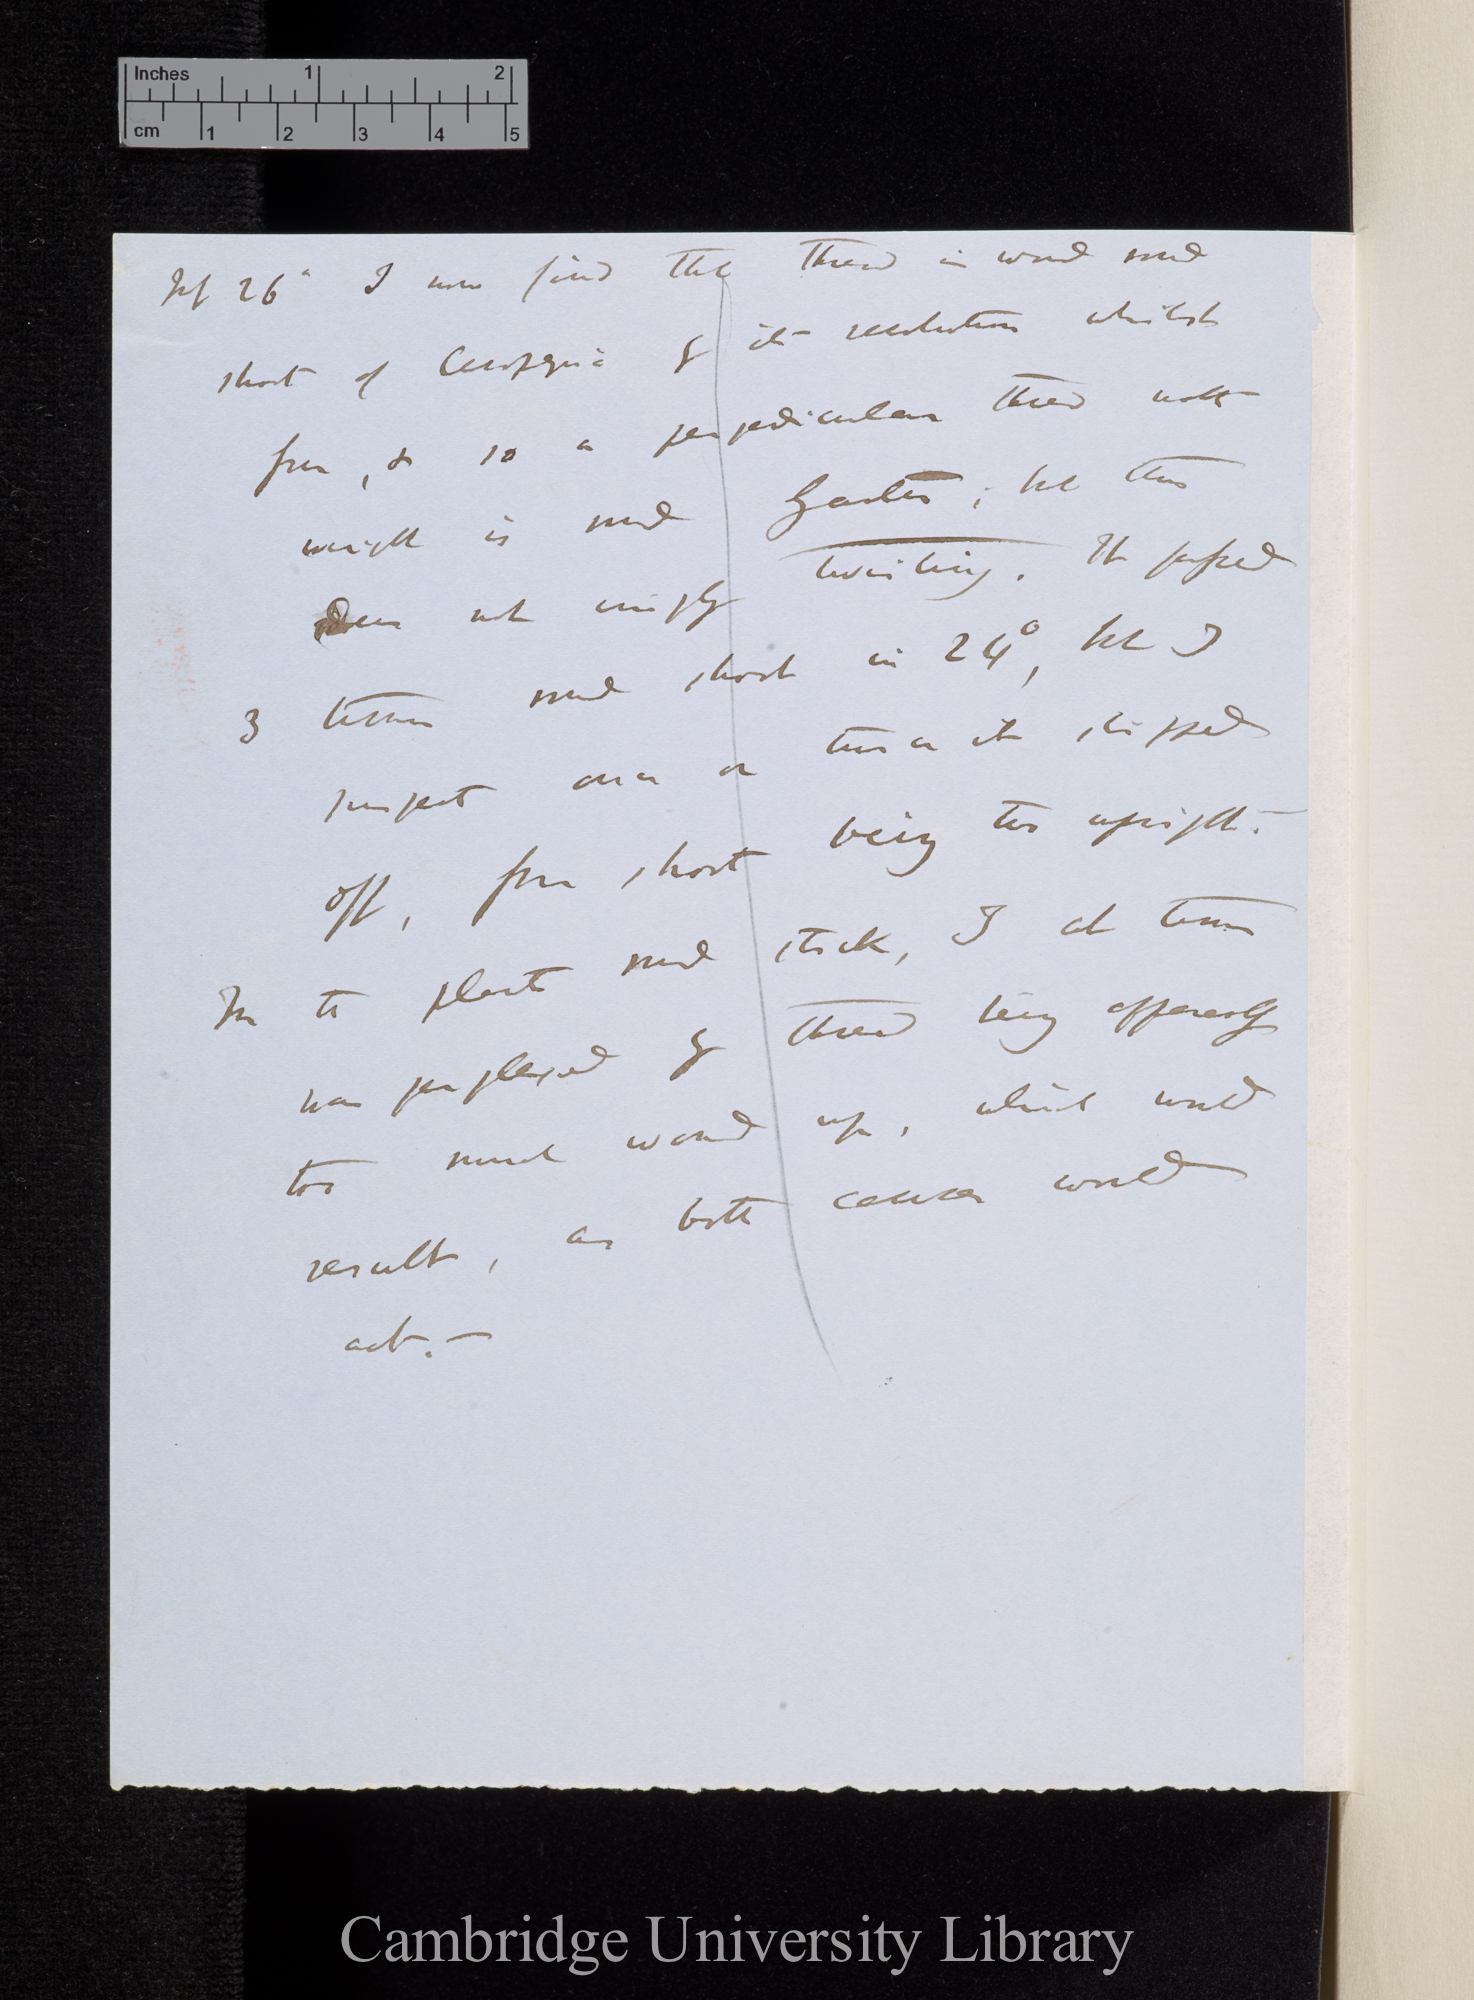 Inches 1 2
cm 1 2 3 4 5
26° I now find the thread is wound round
shoot of Ceropegia by its revolution whilst
free, & so a perpendicular thread with
weight is round ; but this
does not imply twisting. It passed
3 times round shoot in 24°, but I
suspect once or twice it slipped
off, from shoot being too upright.—
In the plants round stick, I at times
was perplexed by thread being apparently
too much wound up, which would
result, as both causes would
act.—
Cambridge University Library